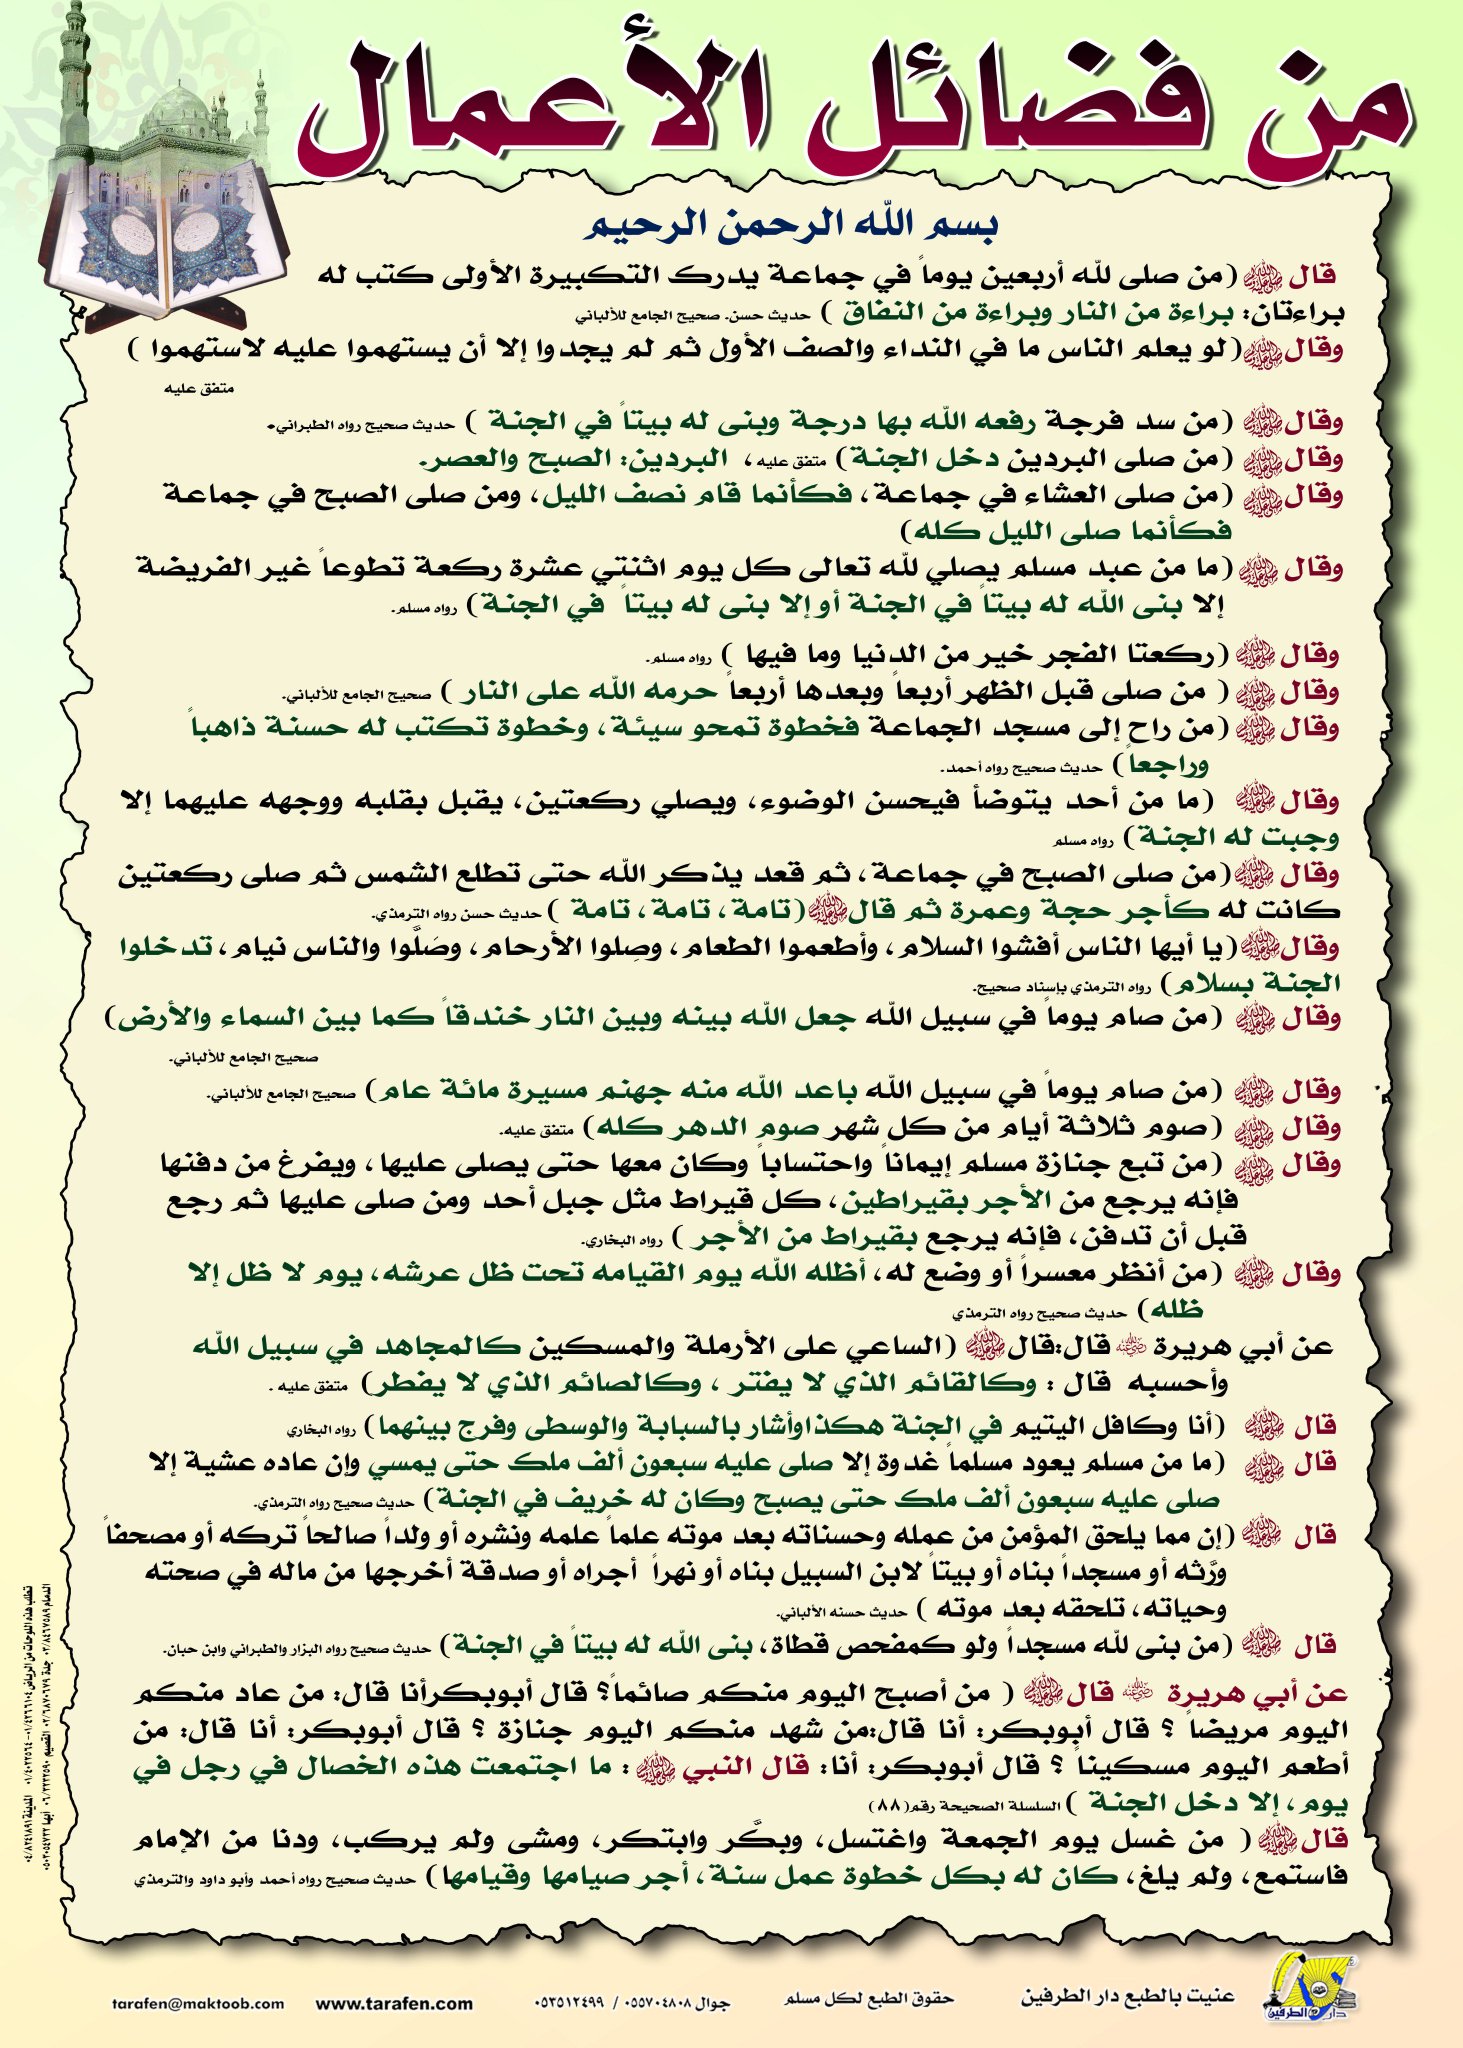 من فضائل الأعمال
بسم الله الرحمن الرحيم
قال ﷺ (من صلى لله أربعين يوماً في جماعة يدرك التكبيرة الأولى كتب له
براءتان: براءة من النار وبراءة من النفاق ) حديث حسن. صحيح الجامع للألباني
وقال ﷺ (لو يعلم الناس ما في النداء والصف الأول ثم لم يجدوا إلا أن يستهموا عليه لاستهموا )
متفق عليه
وقال ﷺ (من سد فرجة رفعه الله بها درجة وبنى له بيتاً في الجنة ) حديث صحيح رواه الطبراني.
وقال ﷺ (من صلى البردين دخل الجنة) متفق عليه، البردين: الصبح والعصر.
وقال ﷺ (من صلى العشاء في جماعة، فكأنما قام نصف الليل، ومن صلى الصبح في جماعة
فكأنما صلى الليل كله)
وقال ﷺ (ما من عبد مسلم يصلي لله تعالى كل يوم اثنتي عشرة ركعة تطوعاً غير الفريضة
إلا بنى الله له بيتاً في الجنة أو إلا بنى له بيتاً في الجنة) رواه مسلم.
وقال ﷺ (ركعتا الفجر خير من الدنيا وما فيها ) رواه مسلم.
وقال ﷺ ( من صلى قبل الظهر أربعاً وبعدها أربعاً حرمه الله على النار ) صحيح الجامع للألباني.
وقال ﷺ (من راح إلى مسجد الجماعة فخطوة تمحو سيئة، وخطوة تكتب له حسنة ذاهباً
وراجعاً) حديث صحيح رواه أحمد.
وقال ﷺ (ما من أحد يتوضأ فيحسن الوضوء، ويصلي ركعتين، يقبل بقلبه ووجهه عليهما إلا
وجبت له الجنة) رواه مسلم
وقال ﷺ (من صلى الصبح في جماعة، ثم قعد يذكر الله حتى تطلع الشمس ثم صلى ركعتين
كانت له كأجر حجة وعمرة ثم قال ﷺ (تامة، تامة، تامة ) حديث حسن رواه الترمذي.
وقال ﷺ (يا أيها الناس أفشوا السلام، وأطعموا الطعام، وصِلوا الأرحام، وصَلَّوا والناس نيام، تدخلوا
الجنة بسلام) رواه الترمذي بإسناد صحيح.
وقال ﷺ (من صام يوماً في سبيل الله جعل الله بينه وبين النار خندقاً كما بين السماء والأرض)
صحيح الجامع للألباني.
وقال ﷺ (من صام يوماً في سبيل الله باعد الله منه جهنم مسيرة مائة عام) صحيح الجامع للألباني.
وقال ﷺ (صوم ثلاثة أيام من كل شهر صوم الدهر كله) متفق عليه.
وقال ﷺ (من تبع جنازة مسلم إيماناً واحتساباً وكان معها حتى يصلى عليها، ويفرغ من دفنها
فإنه يرجع من الأجر بقيراطين، كل قيراط مثل جبل أحد ومن صلى عليها ثم رجع
قبل أن تدفن، فإنه يرجع بقيراط من الأجر ) رواه البخاري.
وقال ﷺ (من أنظر معسراً أو وضع له، أظله الله يوم القيامه تحت ظل عرشه، يوم لا ظل إلا
ظله) حديث صحيح رواه الترمذي
عن أبي هريرة رضي الله عنه قال:قال ﷺ (الساعي على الأرملة والمسكين كالمجاهد في سبيل الله
وأحسبه قال : وكالقائم الذي لا يفتر ، وكالصائم الذي لا يفطر) متفق عليه .
قال ﷺ (أنا وكافل اليتيم في الجنة هكذا وأشار بالسبابة والوسطى وفرج بينهما) رواه البخاري
قال ﷺ (ما من مسلم يعود مسلماً غدوة إلا صلى عليه سبعون ألف ملك حتى يمسي وإن عاده عشية إلا
صلى عليه سبعون ألف ملك حتى يصبح وكان له خريف في الجنة) حديث صحيح رواه الترمذي.
قال ﷺ (إن مما يلحق المؤمن من عمله وحسناته بعد موته علماً علمه ونشره أو ولداً صالحاً تركه أو مصحفاً
ورَّثه أو مسجداً بناه أو بيتاً لابن السبيل بناه أو نهراً أجراه أو صدقة أخرجها من ماله في صحته
وحياته، تلحقه بعد موته ) حديث حسنه الألباني.
قال ﷺ (من بنى لله مسجداً ولو كمفحص قطاة، بنى الله له بيتاً في الجنة) حديث صحيح رواه البزار والطبراني وابن حبان.
عن أبي هريرة رضي الله عنه قال ﷺ ( من أصبح اليوم منكم صائماً؟ قال أبوبكرأنا قال: من عاد منكم
اليوم مريضاً ؟ قال أبوبكر: أنا قال:من شهد منكم اليوم جنازة ؟ قال أبوبكر: أنا قال: من
أطعم اليوم مسكيناً ؟ قال أبوبكر: أنا: قال النبي ﷺ : ما اجتمعت هذه الخصال في رجل في
يوم، إلا دخل الجنة ) السلسلة الصحيحة رقم(٨٨)
قال ﷺ ( من غسل يوم الجمعة واغتسل، وبكَّر وابتكر، ومشى ولم يركب، ودنا من الإمام
فاستمع، ولم يلغ، كان له بكل خطوة عمل سنة، أجر صيامها وقيامها) حديث صحيح رواه أحمد وأبو داود والترمذي
دار الطرفين
عنيت بالطبع دار الطرفين
حقوق الطبع لكل مسلم
جوال ٠٥٥٧٠٤٨٠٨ / ٠٥٣٥١٢٤٩٩
www.tarafen.com
tarafen@maktoob.com